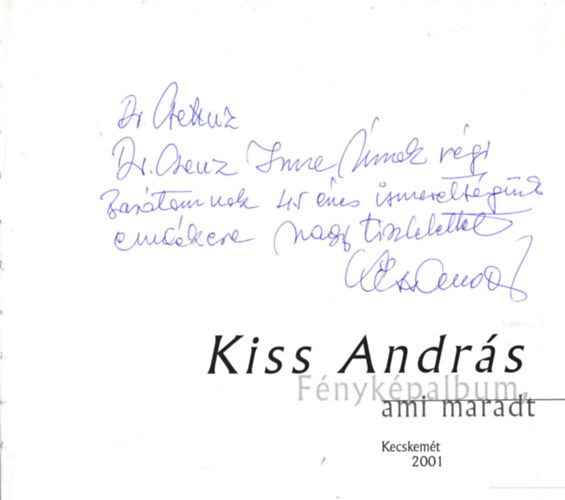 Dr.
Dr. Imre Úrnak régi
Barátomnak 45 éves ismeretségünk
emlékére nagy tisztelettel
Kiss András
Kiss András
Fényképalbum,
ami maradt
Kecskemét
2001